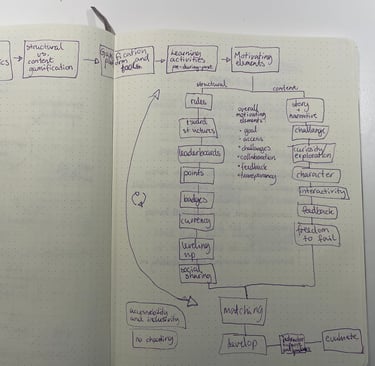 cs
structural
vs.
content
gamification
Gamification
platform and
tools
Learning
activities
pre-during-post
Motivating
elements
structural
content
rules
reward
structures
leaderboards
points
badges
currency
leveling
up
social
sharing
overall
motivating
elements:
• goal
• access
• challenges
• collaboration
• feedback
• transparency
story
+
narrative
challenge
curiosity/
exploration
character
interactivity
feedback
freedom
to fail
accessibility
and inclusivity
no cheating
matching
develop
evaluate